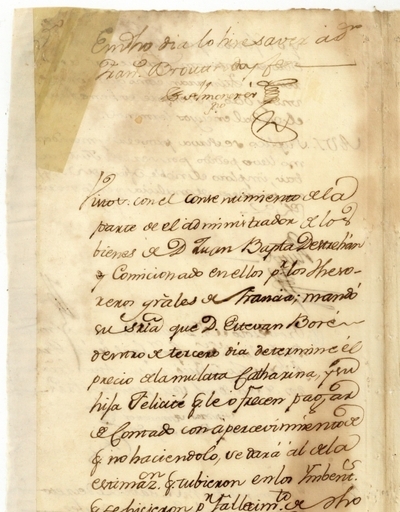 En dho dia lo hise saver à Dn
Fran. Broutin doy fee
Vistos: con el consentimiento de la
parte de el administrador de los
bienes de D. Juan Bapta Destrehan
y Comicionado en ellos pr. los Theso-
reros grales de Francia; mandó
su Sria que D. Estevan Boré
dentro de tercero dia determine él
precio de la mulata Catharina, y su
hija Felicité qe. le ofrecen pagar
de Contado con apercevimiento de
q no haciendolo, se dará al de la
estimazn. q tubieron en los Imbents.
q se hicieron pr. Fallecimto. de dho